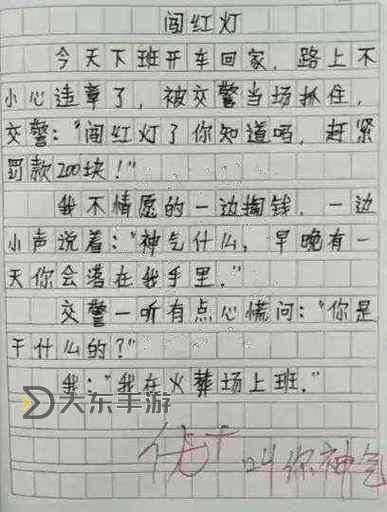 闯红灯
今天下班开车回家，路上不
小心违章了，被交警当场抓住，
交警：“闯红灯了你知道吗，赶紧
罚款200块！”
我不情愿的一边掏钱，一边
小声说着：“神气什么，早晚有一
天你会落在我手里．”
交警一听有点心慌问：“你是
干什么的？”
我：“我在火葬场上班．”
大东手游
优+ 叫你神气